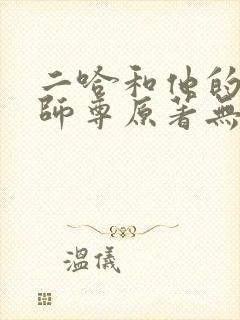 二哈和他的
師尊原著無
溫儀